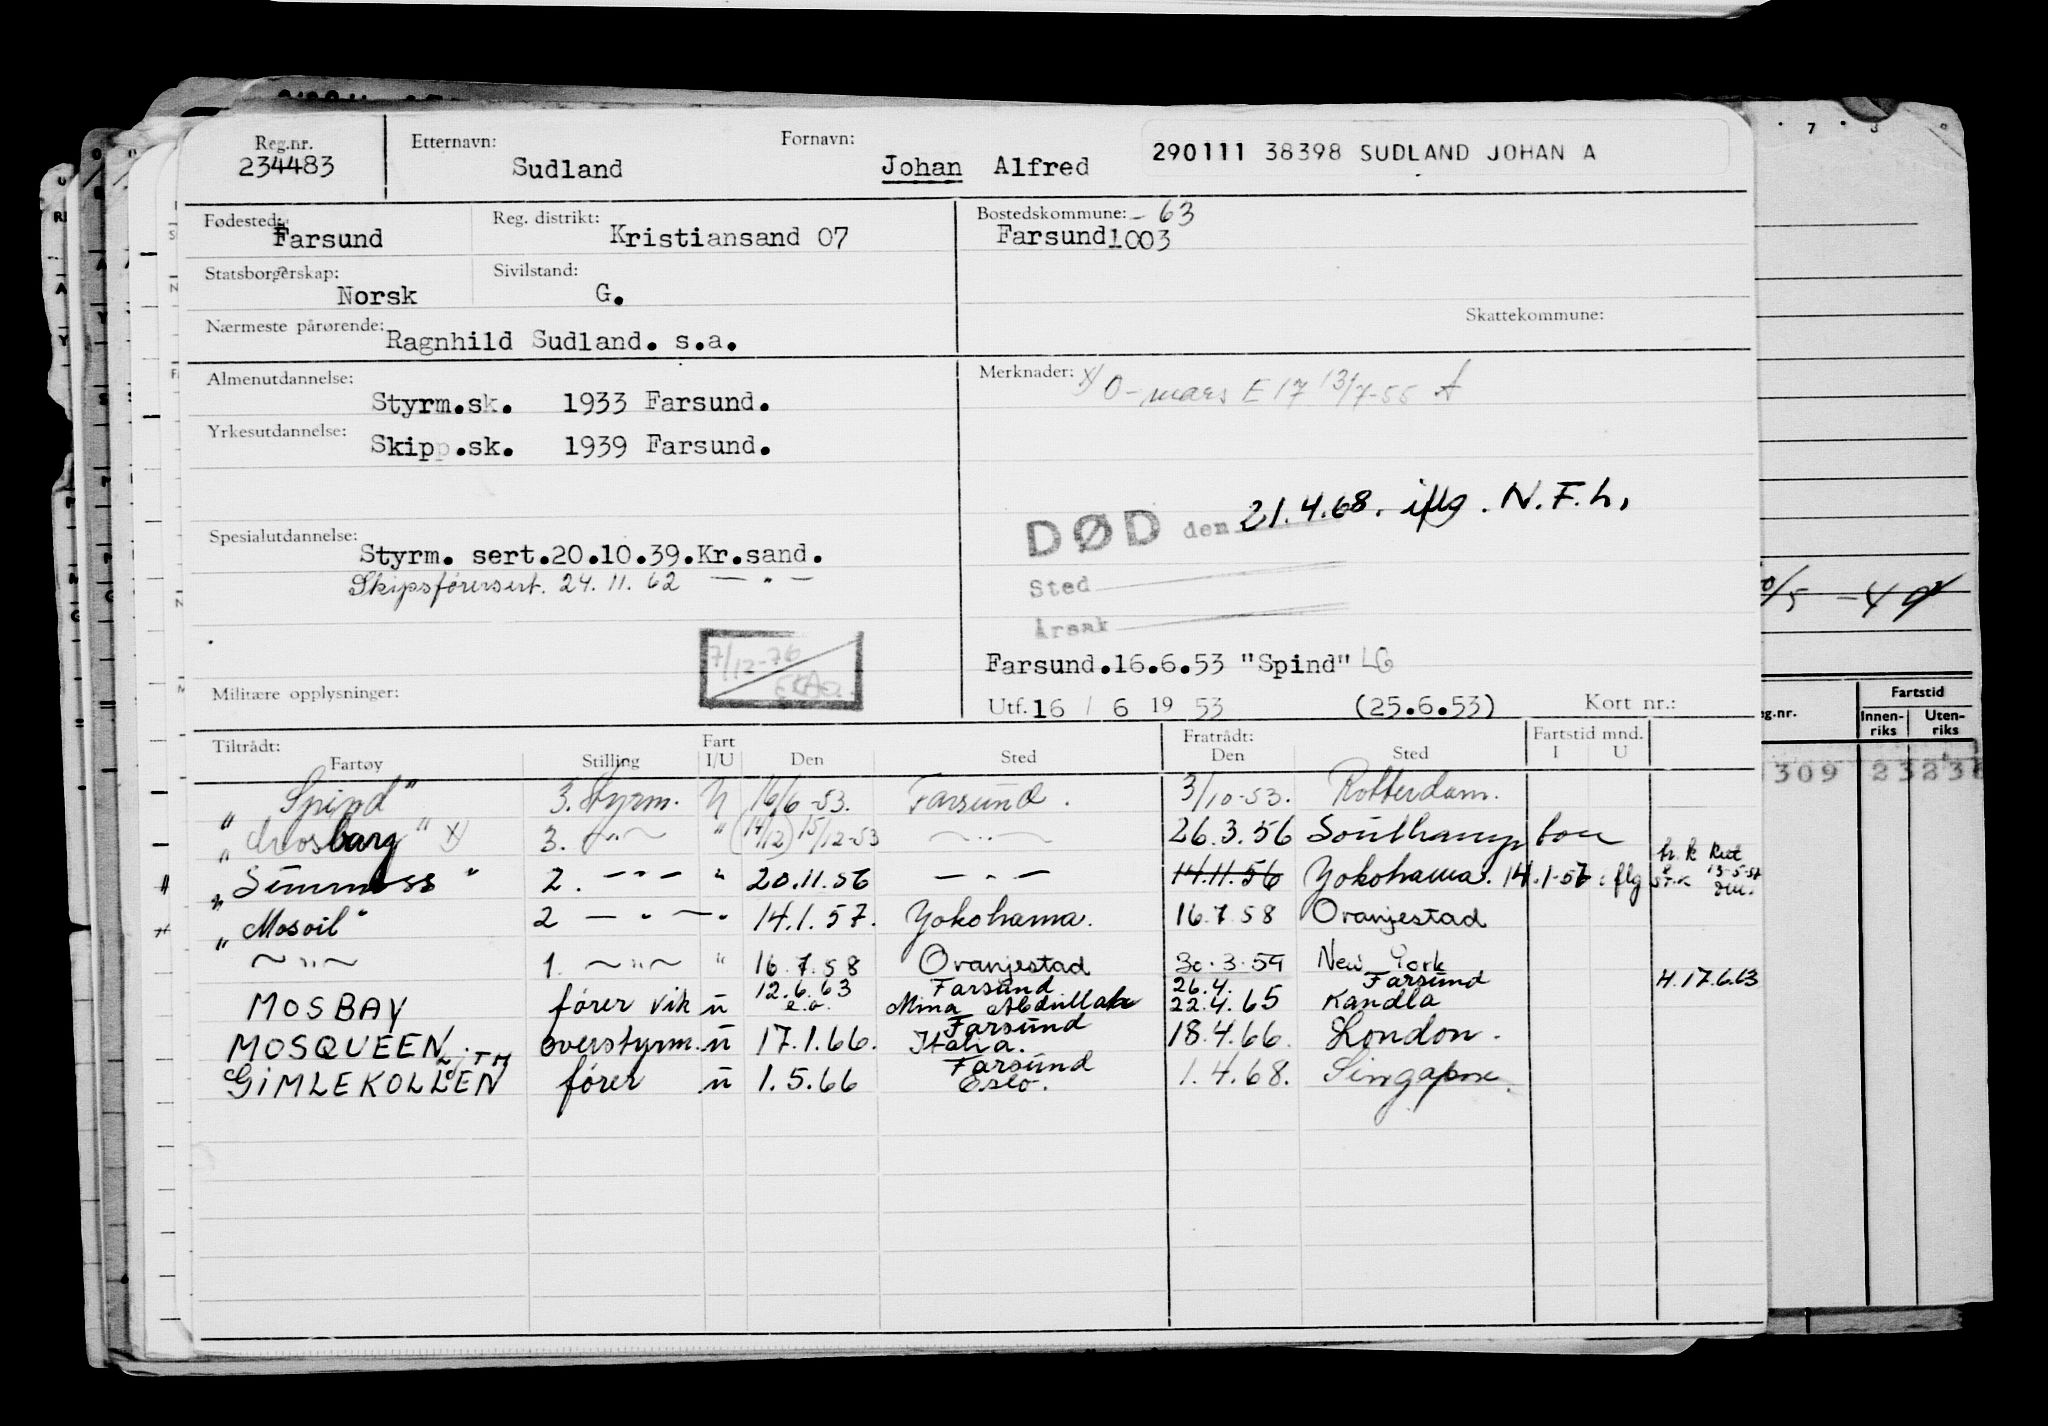 Reg.nr. Etternavn: Fornavn: 290111 38398 SUDLAND JOHAN A
234483 Sudland Johan Alfred
Fødested: Reg. distrikt: Bostedskommune: - 63
Farsund Kristiansand 07 Farsund 1003
Statsborgerskap: Sivilstand:
Norsk G.
Skattekommune:
Nærmeste pårørende: Ragnhild Sudland. s.a.
Almenutdannelse: Merknader: x/ O-mars E 17 13/7-55 A
Styrm.sk. 1933 Farsund.
Yrkesutdannelse:
Skipp.sk. 1939 Farsund.
DØD den 21.4.68. iflg. N.F.h.
Spesialutdannelse:
Styrm. sert.20.10.39.Kr.sand.
Skipsførersert. 24.11.62 — " —
Sted
Årsak
7/12-76
Farsund.16.6.53 "Spind" LG
Militære opplysninger:
Utf. 16 / 6 19 53 (25.6.53) Kort nr.:
Tiltrådt: Fart Fratrådt: Fartstid mnd.
Fartøy Stilling I/U Den Sted Den Sted I U
"Spind" 3. Styrm. U 16/6-53. Farsund. 3/10-53. Rotterdam.
"Mosbarg" x) 3. — " — " (14/12) 15/12-53 — " — 26.3.56 Southampton
"Simmoss" 2. — " — " 20.11.56 — " — 14.11.56 Yokohama. 14.1-57 iflg
"Mosoil" 2 — " — " 14.1.57. Yokohama. 16.7.58 Oranjestad
— " — 1. — " — " 16.7.58 Oranjestad 30.3.59 New York
MOSBAY fører vik ü 12.6.63 e.o. Farsund Mina Abdullah 26.4. 22.4.65 Farsund Kandla H.17.6.63
MOSQUEEN overstyrm. ü 17.1.66. Farsund Italia. 18.4.66. London.
GIMLEKOLLEN fører ü 1.5.66 Farsund Oslo. 1.4.68. Singapore.
g.nr. Fartstid
Innen-riks Uten-riks
309 23 23